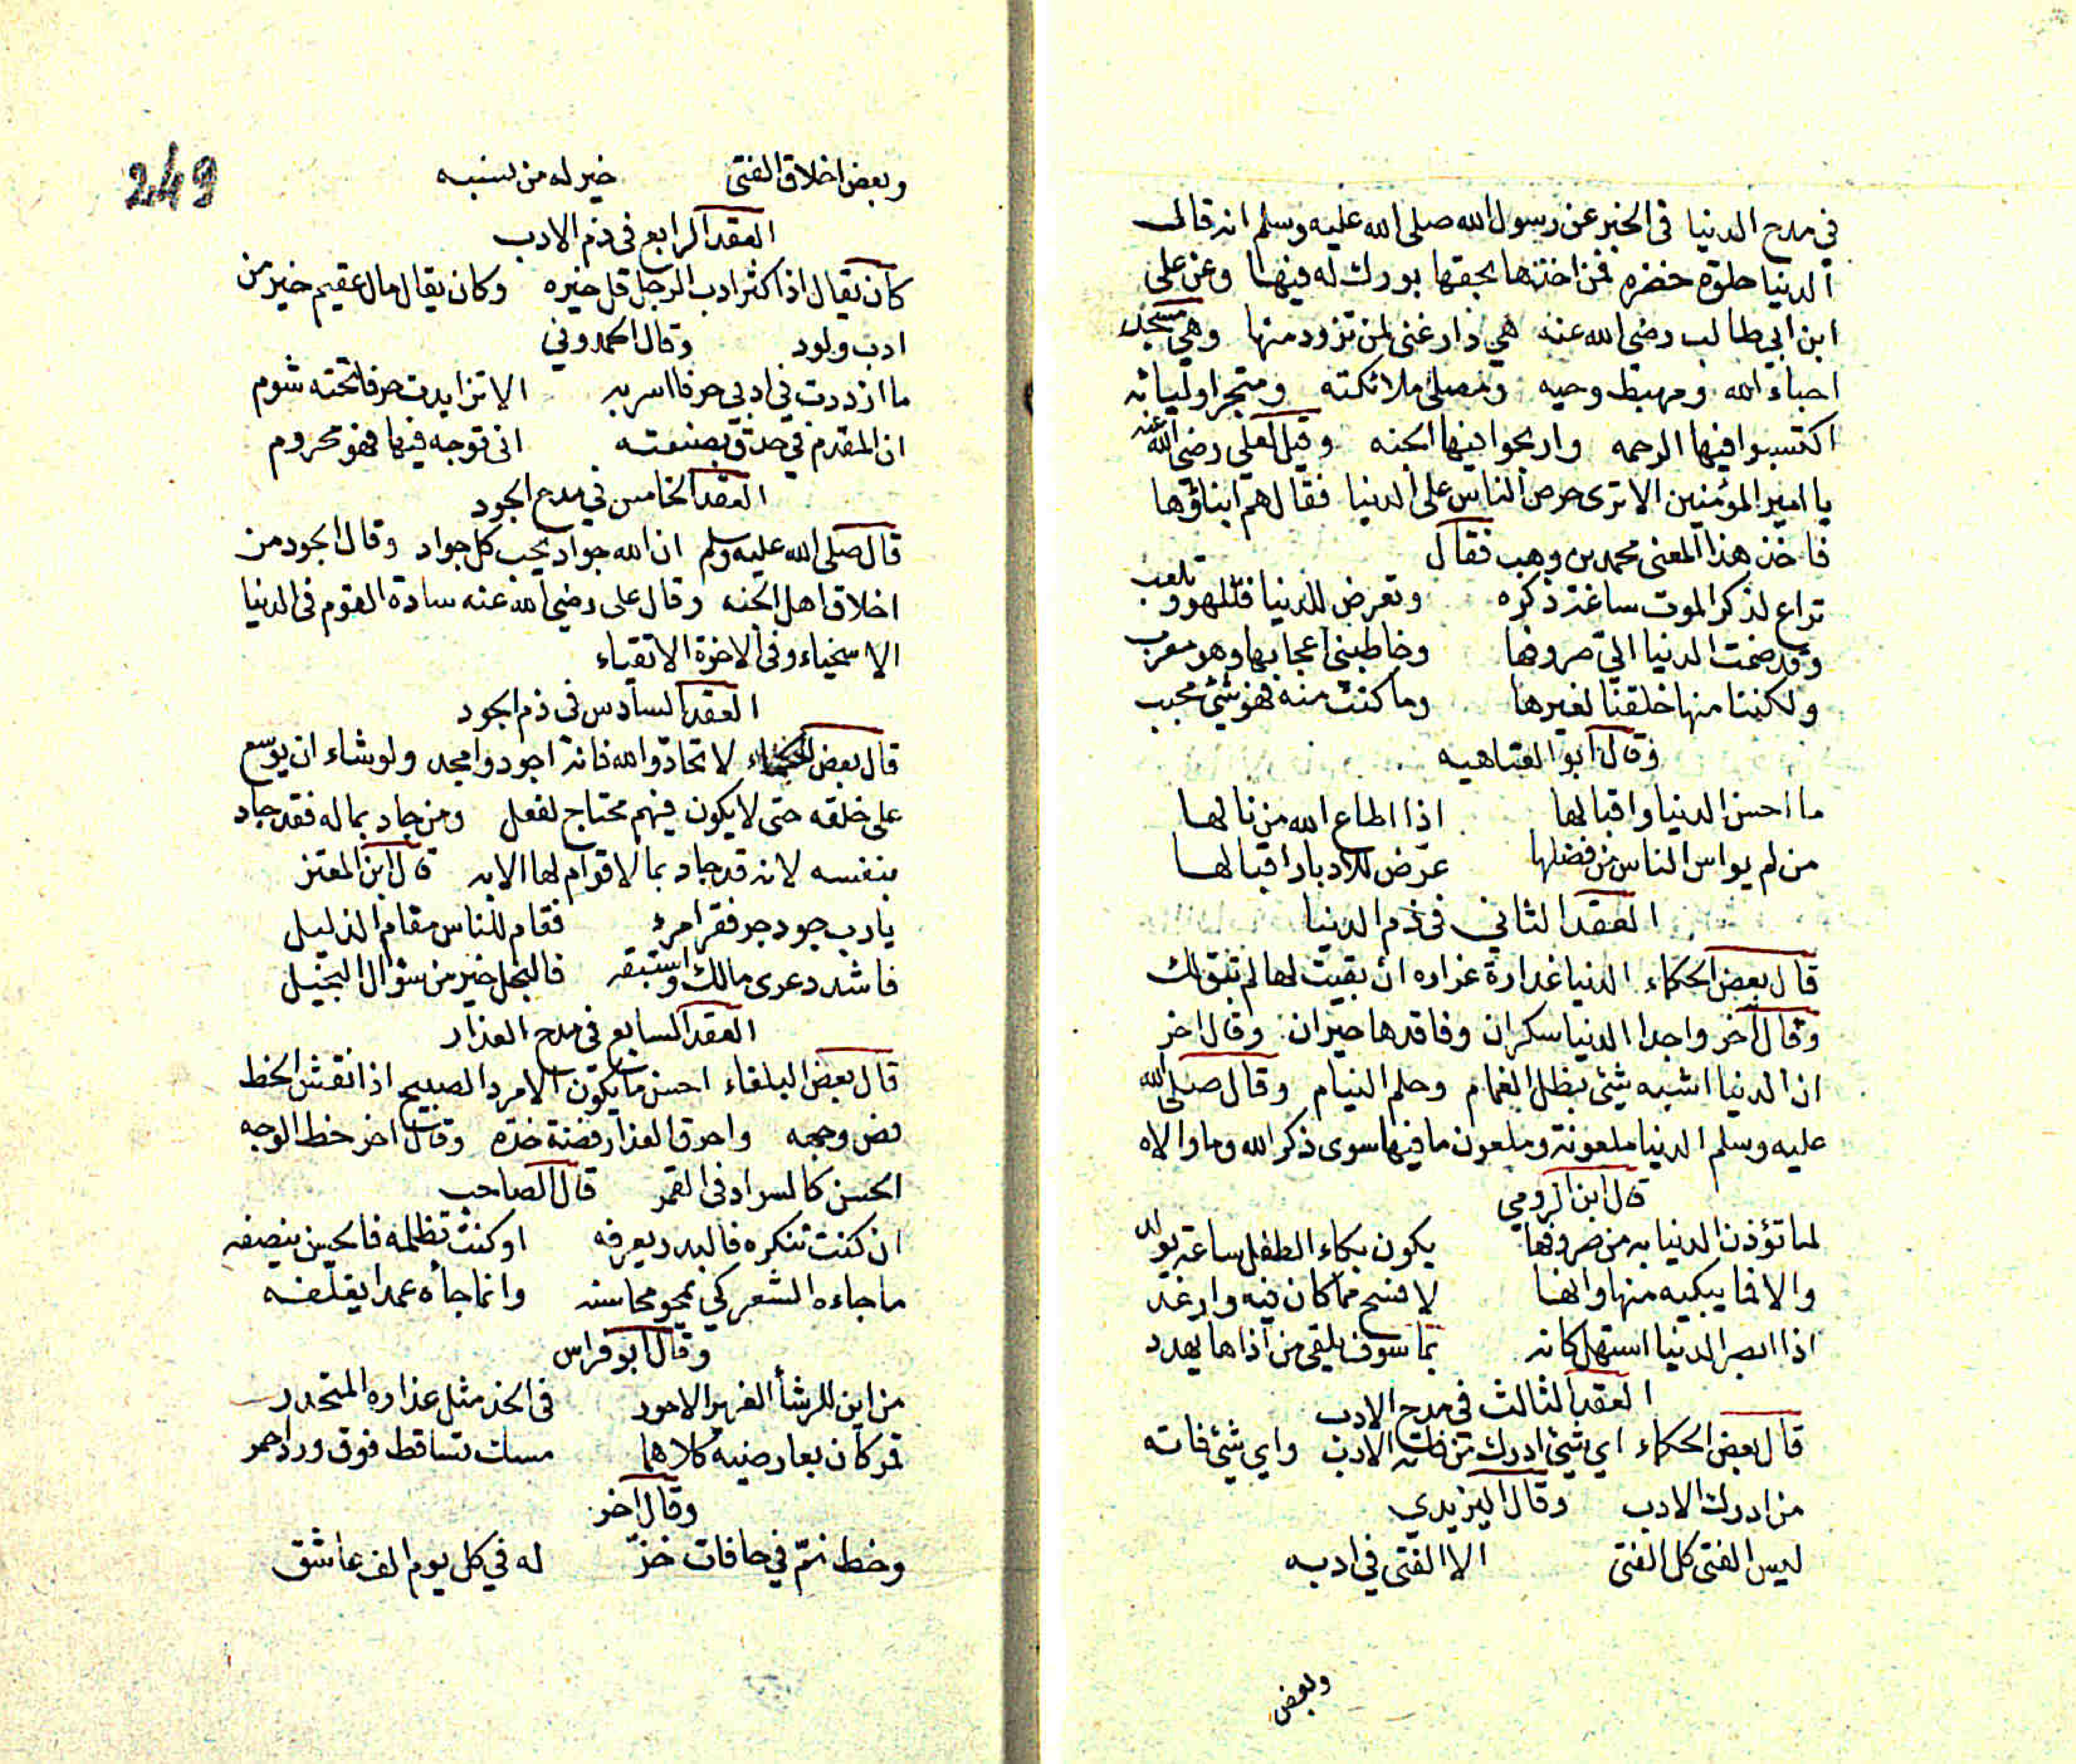 في مدح الدنيا في الخبر عن رسول الله صلى الله عليه وسلم انه قال
الدنيا حلوة خضره فمن اخذها بحقها بورك له فيها وعن علي
ابن ابي طالب رضى الله عنه هي دار غنى لمن تزود منها وهي مسجد
احباء الله ومهبط وحيه ومصلى ملائكته ومتجر اوليائه
اكتسبوا فيها الرحمه واربحوا فيها الجنه وقيل لعلى رضى الله عنه
يا امير المؤمنين الا ترى حرص الناس على الدنيا فقال هم ابناؤها
فاخذ هذا المعنى محمد بن وهب فقال
تراع لذكر الموت ساعة ذكره وتعرض للدنيا فتلهو وتلعب
وقد ضمت الدنيا الي صروفها وخاطبني اعجابها وهو معرب
ولكننا منها خلقنا لغيرها وما كنت منه فهو شئ محبب
وقال ابو العتاهيه
ما احسن الدنيا واقبالها اذا اطاع الله من نالها
من لم يواس الناس من فضلها عرّض للادبار اقبالها
العقد الثاني في ذم الدنيا
قال بعض الحكماء الدنيا غدارة غراره ان بقيت لها لم تبق لك
وقال آخر واجد الدنيا سكران وفاقدها حيران وقال اخر
ان الدنيا اشبه شئ بظل الغمام وحلم النيام وقال صلى الله
عليه وسلم الدنيا ملعونة وملعون ما فيها سوى ذكر الله وما والاه
قال ابن الرومي
لما تؤذن الدنيا به من صروفها يكون بكاء الطفل ساعة يولد
والا فما يبكيه منها وانها لافسح مما كان فيه وارغد
اذا ابصر الدنيا استهل كانه بما سوف يلقى من اذاها يهدد
العقد الثالث في مدح الادب
قال بعض الحكماء اي شئ ادرك من فاته الادب واي شئ فاته
من ادرك الادب وقال اليزيدي
ليس الفتى كل الفتى الا الفتى في ادبه
وبعض
249
وبعض اخلاق الفتى خير له من نسبه
العقد الرابع في ذم الادب
كان يقال اذا كثر ادب الرجل قل خيره وكان يقال مال عقيم خير من
ادب ولود وقال الحمدوني
ما ازددت في ادبي حرفا اسر به الا تزايدت حرفا تحته شوم
ان المقدم في حذق بصنعته انى توجه فيها فهو محروم
العقد الخامس في مدح الجود
قال صلى الله عليه وسلم ان الله جواد يحب كل جواد وقال الجود من
اخلاق اهل الجنه وقال على رضي الله عنه سادة القوم في الدنيا
الاسخياء وفي الاخرة الاتقياء
العقد السادس في ذم الجود
قال بعض لا تحادوا الله فانه اجود وامجد ولو شاء ان يوسع
على خلقه حتى لا يكون فيهم محتاج لفعل ومن جاد بماله فقد جاد
بنفسه لانه قد جاد بما لا قوام لها الا به قال ابن المعتز
يا رب جود جر فقر امرء فقام للناس مقام الذليل
فاشدد عرى مالك واستبقه فالبخل خير من سؤال البخيل
العقد السابع في مدح العذار
قال بعض البلغاء احسن ما يكون الامرد الصبيح اذا نقش الخط
فص وجهه واحرق العذار فضة خده وقال اخر خط الوجه
الحسن كالسواد في القمر قال الصاحب
ان كنت تنكره فالبدر يعرفه او كنت تظلمه فالحسن ينصفه
ما جاءه الشعر كي يمحو محاسنه وانما جاه عمدا يغلفه
وقال ابو فراس
من اين للرشأ الغرير الاحور في الخد مثل عذاره المتحدر
قمر كان بعارضيه كلاهما مسك تساقط فوق ورد احمر
وقال آخر
وخط نمّ في حافات خدّ له في كل يوم الف عاشق